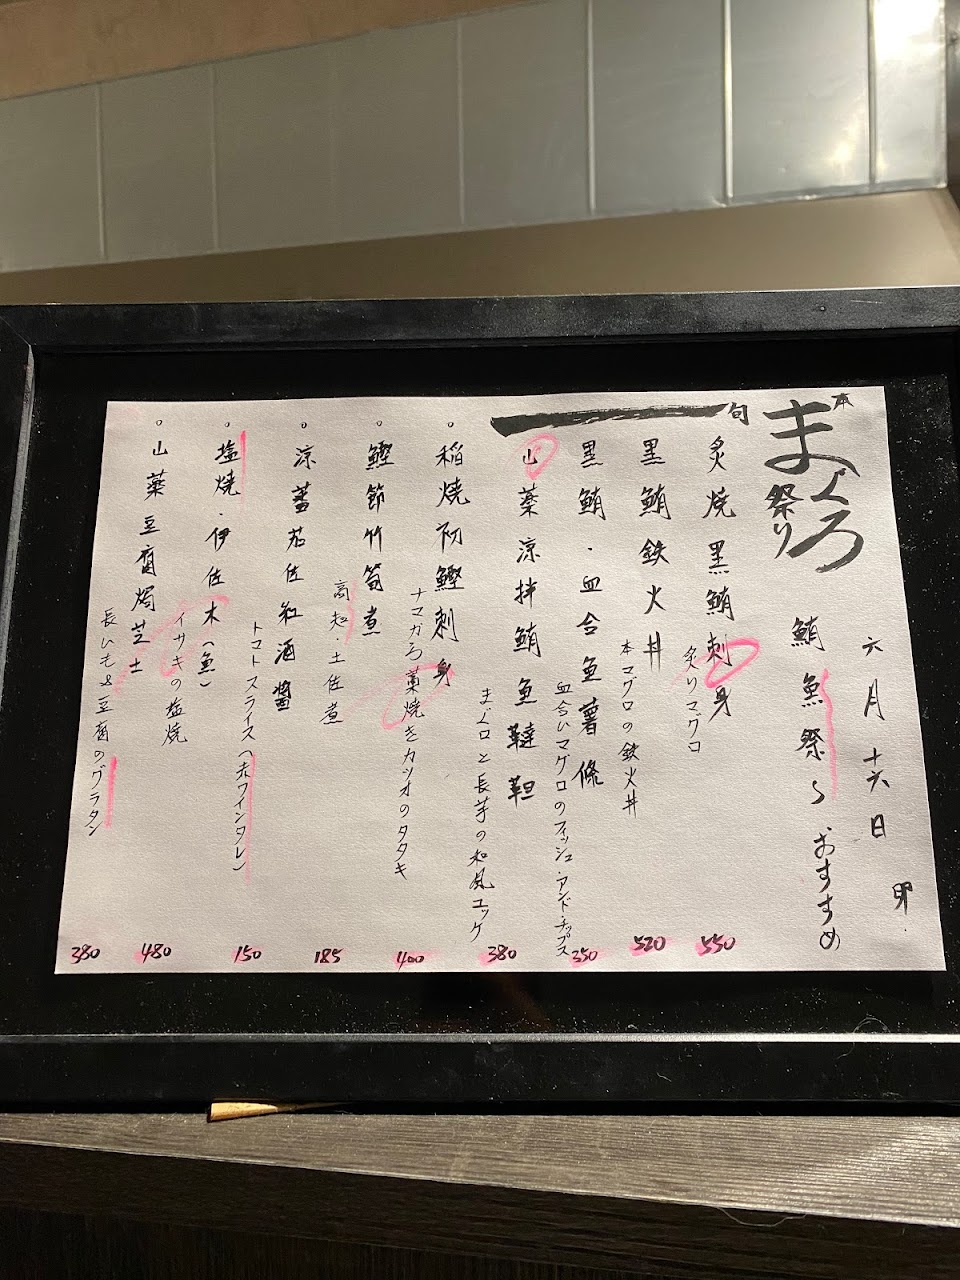 六月十六日
本まぐろ祭り
鮪魚祭〜おすすめ
旬
炙焼黒鮪刺身
炙りマグロ
550
黒鮪鉄火丼
本マグロの鉄火丼
520
黒鮪・血合魚薯條
血合いマグロのフィッシュ・アンド・チップス
350
山薬涼拌鮪魚韃靼
まぐロと長芋の和風ユッケ
380
。稲焼初鰹刺身
ナマガろ藁焼きカツオのタタキ
400
。鰹節竹筍煮
高知・土佐煮
185
。涼蕃茄佐紅酒醬
トマトスライス(赤ワインタレ)
150
。塩燒・伊佐木(魚)
イサキの塩焼
480
。山薬豆腐焗芝士
長いも&豆腐のグラタン
380